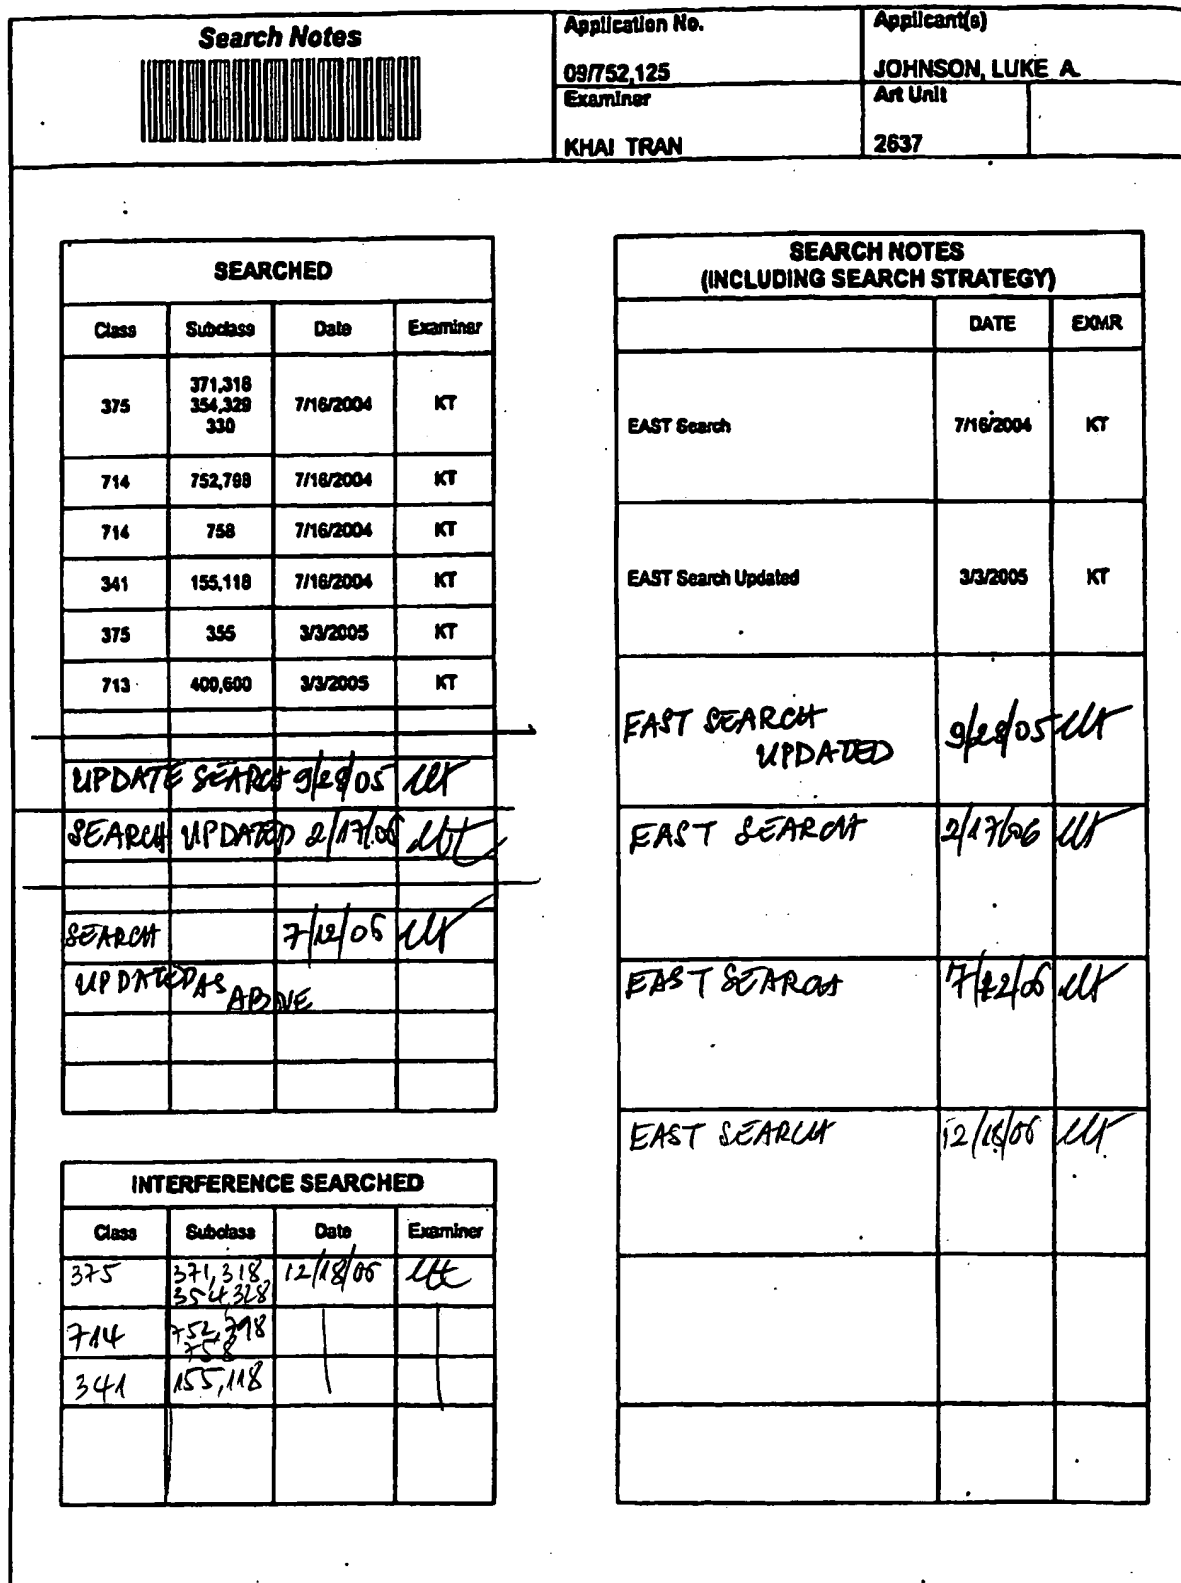 Search Notes
Application No.
Applicant(s)
09/752,125
JOHNSON, LUKE A.
Examiner
Art Unit
KHAI TRAN
2637
SEARCHED
Class Subclass Date Examiner
375 371,318 354,329 330 7/16/2004 KT
714 752,798 7/16/2004 KT
714 758 7/16/2004 KT
341 155,118 7/16/2004 KT
375 355 3/3/2005 KT
713 400,600 3/3/2005 KT
UPDATE SEARCH 9/28/05
SEARCH UPDATED 2/17/06
SEARCH 7/12/06
UPDATED AS
ABOVE
INTERFERENCE SEARCHED
Class Subclass Date Examiner
375 371,318, 12/18/06
354,328
714 752,798
758
341 155,118
SEARCH NOTES
(INCLUDING SEARCH STRATEGY)
DATE EXMR
EAST Search 7/16/2004 KT
EAST Search Updated 3/3/2005 KT
EAST SEARCH 9/28/05
UPDATED
EAST SEARCH 2/17/06
EAST SEARCH
EAST SEARCH 12/18/06